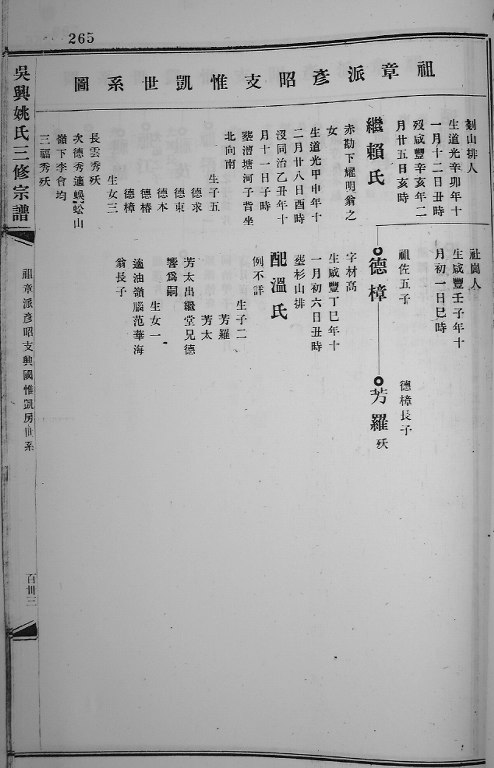 265
祖章派彥昭支惟凱世系圖
劉山排人
生道光辛卯年十
一月十二日丑時
歿咸豐辛亥年二
月廿五日亥時
繼賴氏
赤勘下耀明翁之
女
生道光甲申年十
二月廿八日酉時
沒同治乙丑年十
月十一日子時
塟漕塘河子背坐
北向南
生子五
德求
德束
德本
德椿
德樟
生女三
長雲秀殀
次德秀適蜈蚣山
嶺下李會均
三福秀殀
社崗人
生咸豐壬子年十
月初一日巳時
祖佐五子
德樟
字材高
生咸豐丁巳年十
一月初六日丑時
塟杉山排
配溫氏
例不詳
生子二
芳羅
芳太
芳太出繼堂兄德
響爲嗣
生女一
適油嶺腦范華海
翁長子
德樟長子
芳羅殀
吳興姚氏三修宗譜
祖章派彥昭支興國惟凱房世系
百卅三